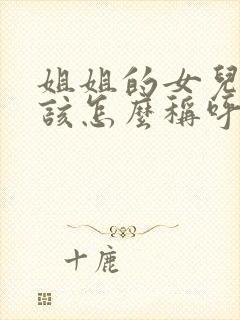 姐姐的女兒
該怎麼稱呼
十鹿